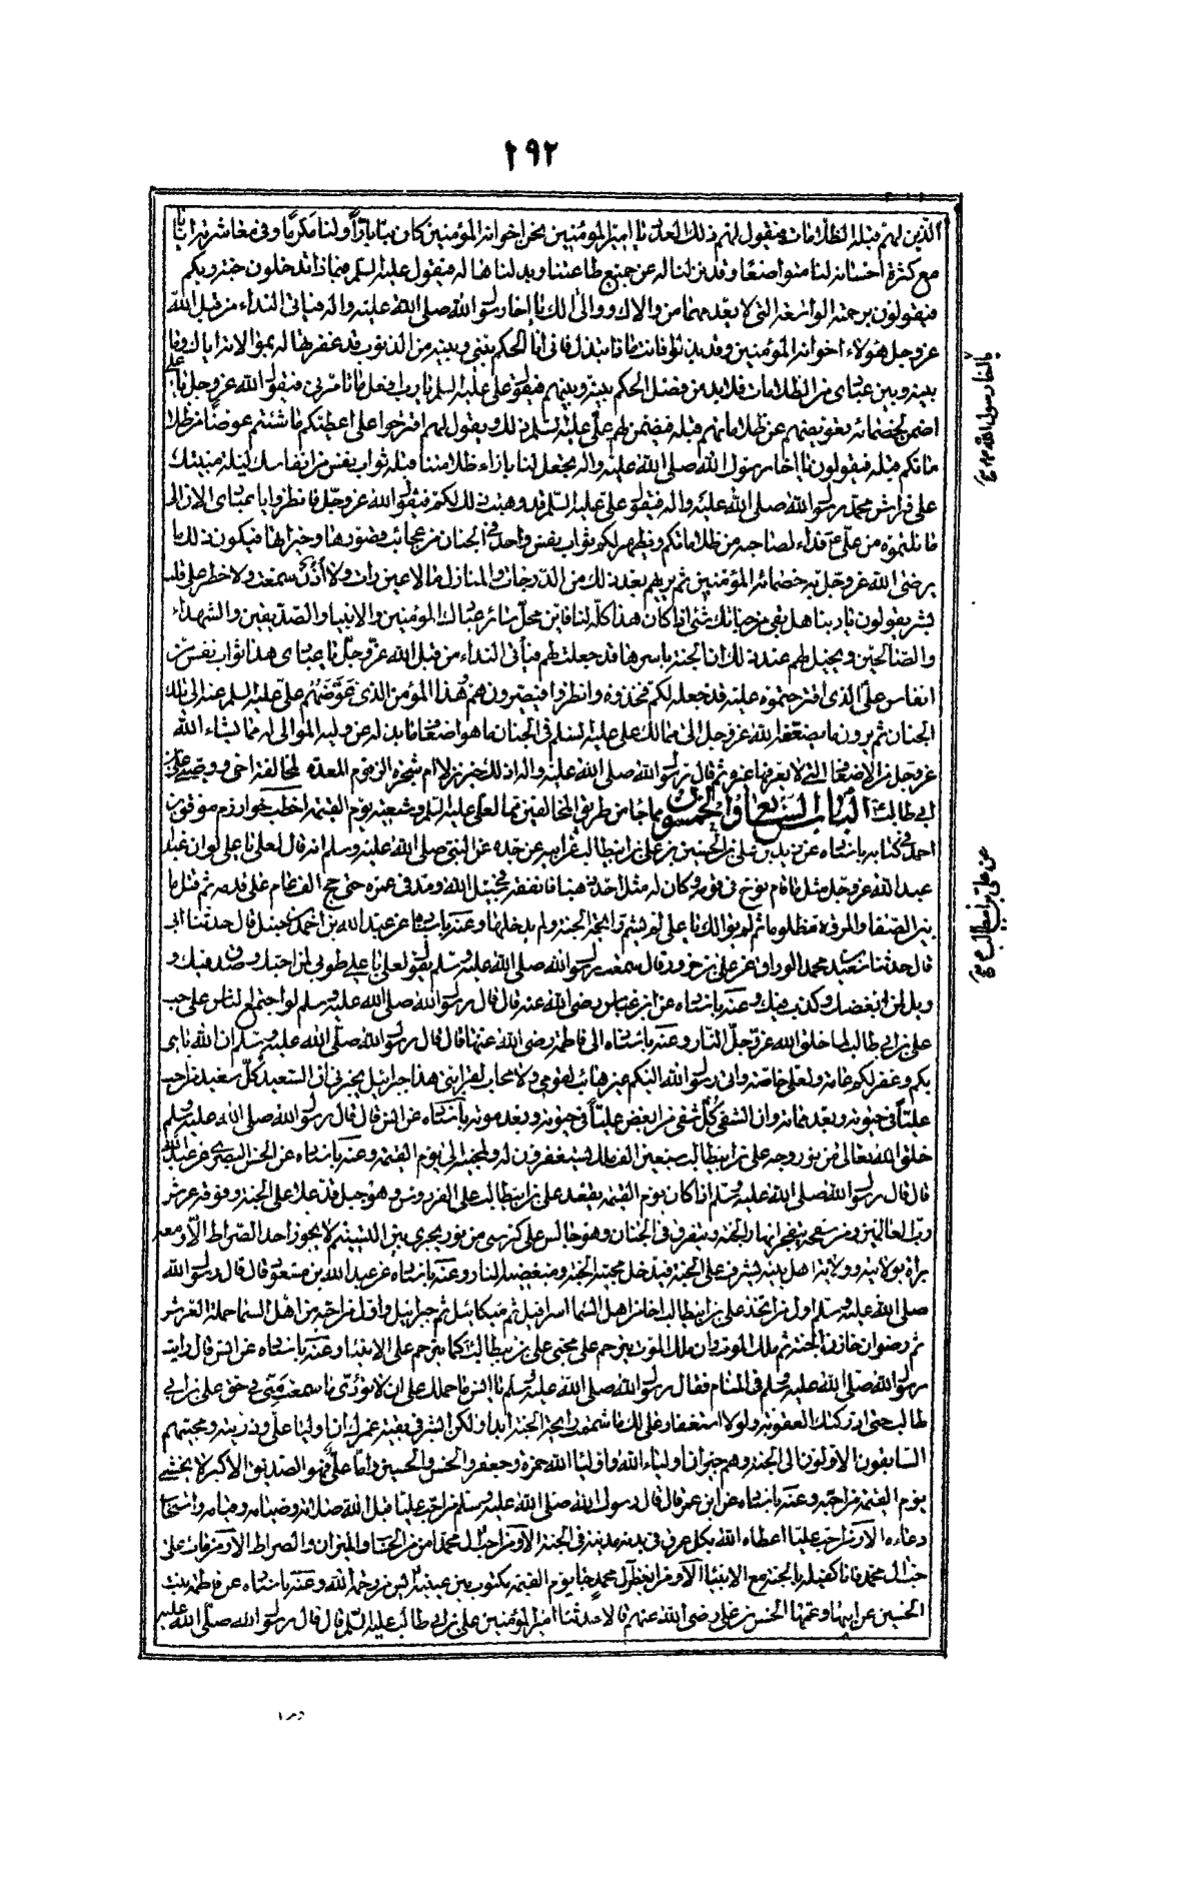 ٢٩٢
الذين لهم قبله الظلامات فيقول لهم ذلك العبد يا امير المؤمنين نحن اخوانه المؤمنين كان بنا بارّاً ولنا مكرمًا وفي معاشرته ايانا
مع كثرة احسانه لنا متواضعًا وقد نزلنا له عن جميع طاعتنا وبذلناها له فيقول عليه السلم فبماذا تدخلون جنة ربكم
فيقولون برحمته الواسعة التي لا يعدمها من والاك ووالى الك يا اخا رسول الله صلى الله عليه واله فياتى النداء من قبل الله
عز وجل هؤلاء اخوانه المؤمنين وقد بذلوا فانت ماذا تبذل فانى انا الحكم بينى وبينه من الذنوب قد غفرتها له بموالاته اياك وما
بينه وبين عبادى من الظلامات فلا بد من فصل الحكم بينه وبينهم فيقول على عليه السلم يا رب افعل ما تامرنى فيقول الله عز وجل يا على
اضمن لخصمائه تعويضهم عن ظلاماتهم قبله فيضمن لهم على عليه السلم ذلك ويقول لهم اقترحوا على اعطيكم ما شئتم عوضًا من ظلا
ماتكم قبله فيقولون يا اخا رسول الله صلى الله عليه واله تجعل لنا بازاء ظلامتنا قبله ثواب نفس من انفاسك ليلة مبيتك
على فراش محمد رسول الله صلى الله عليه واله فيقول على عليه السلم قد وهبت ذلك لكم فيقول الله عز وجل فانظروا يا عبادى الان الى
ما نلتموه من على ع فداء لصاحبه من ظلاماتكم ويظهر لكم ثواب نفس واحد في الجنان من عجائب قصورها وخيراتها فيكون ذلك ما
يرضى الله عز وجل به خصمائه المؤمنين ثم يريهم بعد ذلك من الدرجات والمنازل ما لا عين رات ولا اذن سمعت ولا خطر على قلب
بشر يقولون يا ربنا هل بقى من جناتك شئ اذا كان هذا كله لنا فاين محل سائر عبادك المؤمنين والانبياء والصديقين والشهداء
والصالحين ويخيل لهم عند ذلك ان الجنة باسرها قد جعلت لهم فيأتى النداء من قبل الله عز وجل يا عبادى هذا ثواب نفس من
انفاس على الذى اقترحتموه عليه قد جعله لكم فخذوه وانظروا فيصيرون هم وهذا المؤمن الذى عوّضهم على عليه السلم عنه الى تلك
الجنان ثم يرون ما يضعفه الله عز وجل الى ممالك على عليه السلم في الجنان ما هو اضعاف ما بذله عن وليه الموالى له مما شاء الله
عز وجل من الاضعاف التى لا يعرفها غيره ثم قال رسول الله صلى الله عليه واله اذلك خير نزلا ام شجرة الزقوم المعدة لمخالفى اخى ووصيى على بن
ابي طالب الباب السابع والخمسون ما جاء من طريق المخالفين مما لعلى عليه السلم وشيعته يوم القيمة اخطب خوارزم موفق بن
احمد في كتابه باسناده عن زيد بن على بن الحسين بن على بن ابيطالب عن ابيه عن جده عن النبى صلى الله عليه وسلم انه قال لعلى يا على لو ان عبدا
عبد الله عز وجل مثل ما قام نوح في قومه وكان له مثل احد ذهبا فانفقه في سبيل الله ومد في عمره حتى حج الف عام على قدميه ثم قتل ما
بين الصفا والمروة مظلوما ثم لم يوالك يا على لم يشم رائحة الجنة ولم يدخلها وعنه باسناده عن عبد الله بن احمد بن حنبل قال حدثنا ابى
قال حدثنا سعيد بن محمد الوراق عن على بن حزور قال سمعت رسول الله صلى الله عليه وسلم يقول لعلى يا على طوبى لمن احبك وصدق فيك و
ويل لمن ابغضك وكذب فيك وعنه باسناده عن ابن عباس رضى الله عنه قال قال رسول الله صلى الله عليه وسلم لو اجتمع الناس على حب
على بن ابي طالب لما خلق الله عز وجل النار وعنه باسناده الى فاطمة رضى الله عنها قال قال رسول الله صلى الله عليه وسلم ان الله باهى
بكم وغفر لكم عامة ولعلى خاصة وانى رسول الله اليكم غير هائب لقومى ولا محاب لقرابتى هذا جبرائيل يخبرنى ان السعيد كل سعيد من احب
عليّاً في حيوته وبعد مماته وان الشقى كل شقى من ابغض عليّاً في حيوته وبعد موته باسناده عن انس قال قال رسول الله صلى الله عليه وسلم
خلق الله تعالى من نور وجه على بن ابيطالب سبعين الف ملك يستغفرون له ولمحبيه الى يوم القيمة وعنه باسناده عن الحسن البصرى عن عبد الله
قال قال رسول الله صلى الله عليه وسلم اذا كان يوم القيمة يقعد على بن ابيطالب على الفردوس وهو جبل قد علا على الجنة وفوقه عرش
رب العالمين ومن سفحه يتفجر انهار الجنة ويتفرق في الجنان وهو جالس على كرسى من نور يجرى بين يديه التسنيم لا يجوز احد الصراط الا ومعه
براة بولايته وولاية اهل بيته يشرف على الجنة فيدخل محبيه الجنة ومبغضيه النار وعنه باسناده عن عبد الله بن مسعود قال قال رسول الله
صلى الله عليه وسلم اول من اتخذ على بن ابيطالب اخا من اهل السماء اسرافيل ثم ميكائيل ثم جبرائيل واول من احبه من اهل السماء حملة العرش
ثم رضوان خازن الجنة ثم ملك الموت وان ملك الموت يترحم على محبى على بن ابيطالب كما يترحم على الانبياء وعنه باسناده عن انس قال رايت
رسول الله صلى الله عليه وسلم في المنام فقال رسول الله صلى الله عليه وسلم يا انس ما حملك على ان لا تؤدى ما سمعت منى في حق على بن ابي
طالب حتى ادركتك العقوبة ولولا استغفار على لك ما شممت رايحة الجنة ابدا ولكن ابشر في بقية عمرك ان اولياء على وذريته ومحبيهم
السابقون الاولون الى الجنة وهم جيران اولياء الله واولياء الله حمزة وجعفر والحسن والحسين واما على فهو الصديق الاكبر لا يخشى
يوم القيمة من احبه وعنه باسناده عن ابن عمر قال قال رسول الله صلى الله عليه وسلم من احب عليا قبل الله صلاته وصيامه وقيامه واستجاب
دعاءه الا ومن احب عليا اعطاه الله بكل عرق في بدنه مدينة في الجنة الا ومن احب ال محمد امن من الحساب والميزان والصراط الا ومن مات على
حب ال محمد فانا كفيله بالجنة مع الانبياء الا ومن ابغض ال محمد جاء يوم القيمة مكتوب بين عينيه آيس من رحمة الله وعنه باسناده عن فاطمة بنت
الحسين عن ابيها وعمها الحسن بن على رضى الله عنهم قالا حدثنا امير المؤمنين على بن ابي طالب عليه السلم قال قال رسول الله صلى الله عليه
يا اخا رسول الله
عن على بن ابيطالب